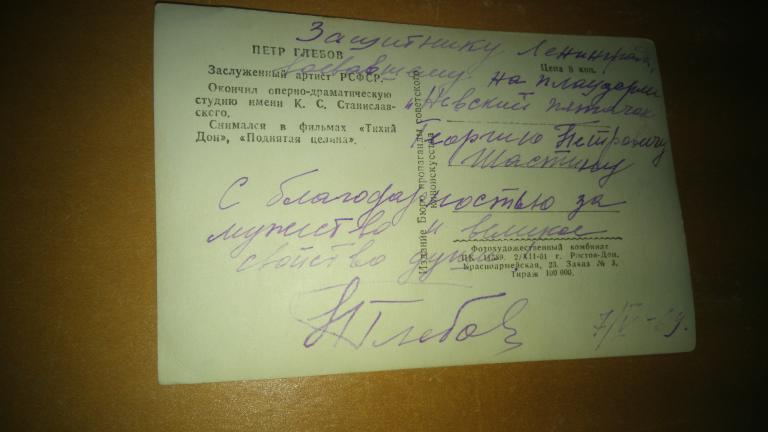 ПЕТР ГЛЕБОВ
Заслуженный артист РСФСР.
Окончил оперно-драматическую
студию имени К. С. Станислав-
ского.
Снимался в фильмах «Тихий
Дон», «Поднятая целина».
Издание Бюро пропаганды советского
киноискусства
Цена 8 коп.
Фотохудожественный комбинат
2/XII-61 г. Ростов-Дон,
Красноармейская, 23. Заказ № 3.
Тираж 100 000.
Защитнику Ленинграда,
воевавшему на плацдарме
"Невский пятачок
Георгию Петровичу
Шастину
С благодарностью за
мужество и великое
свойство души
П Глебов